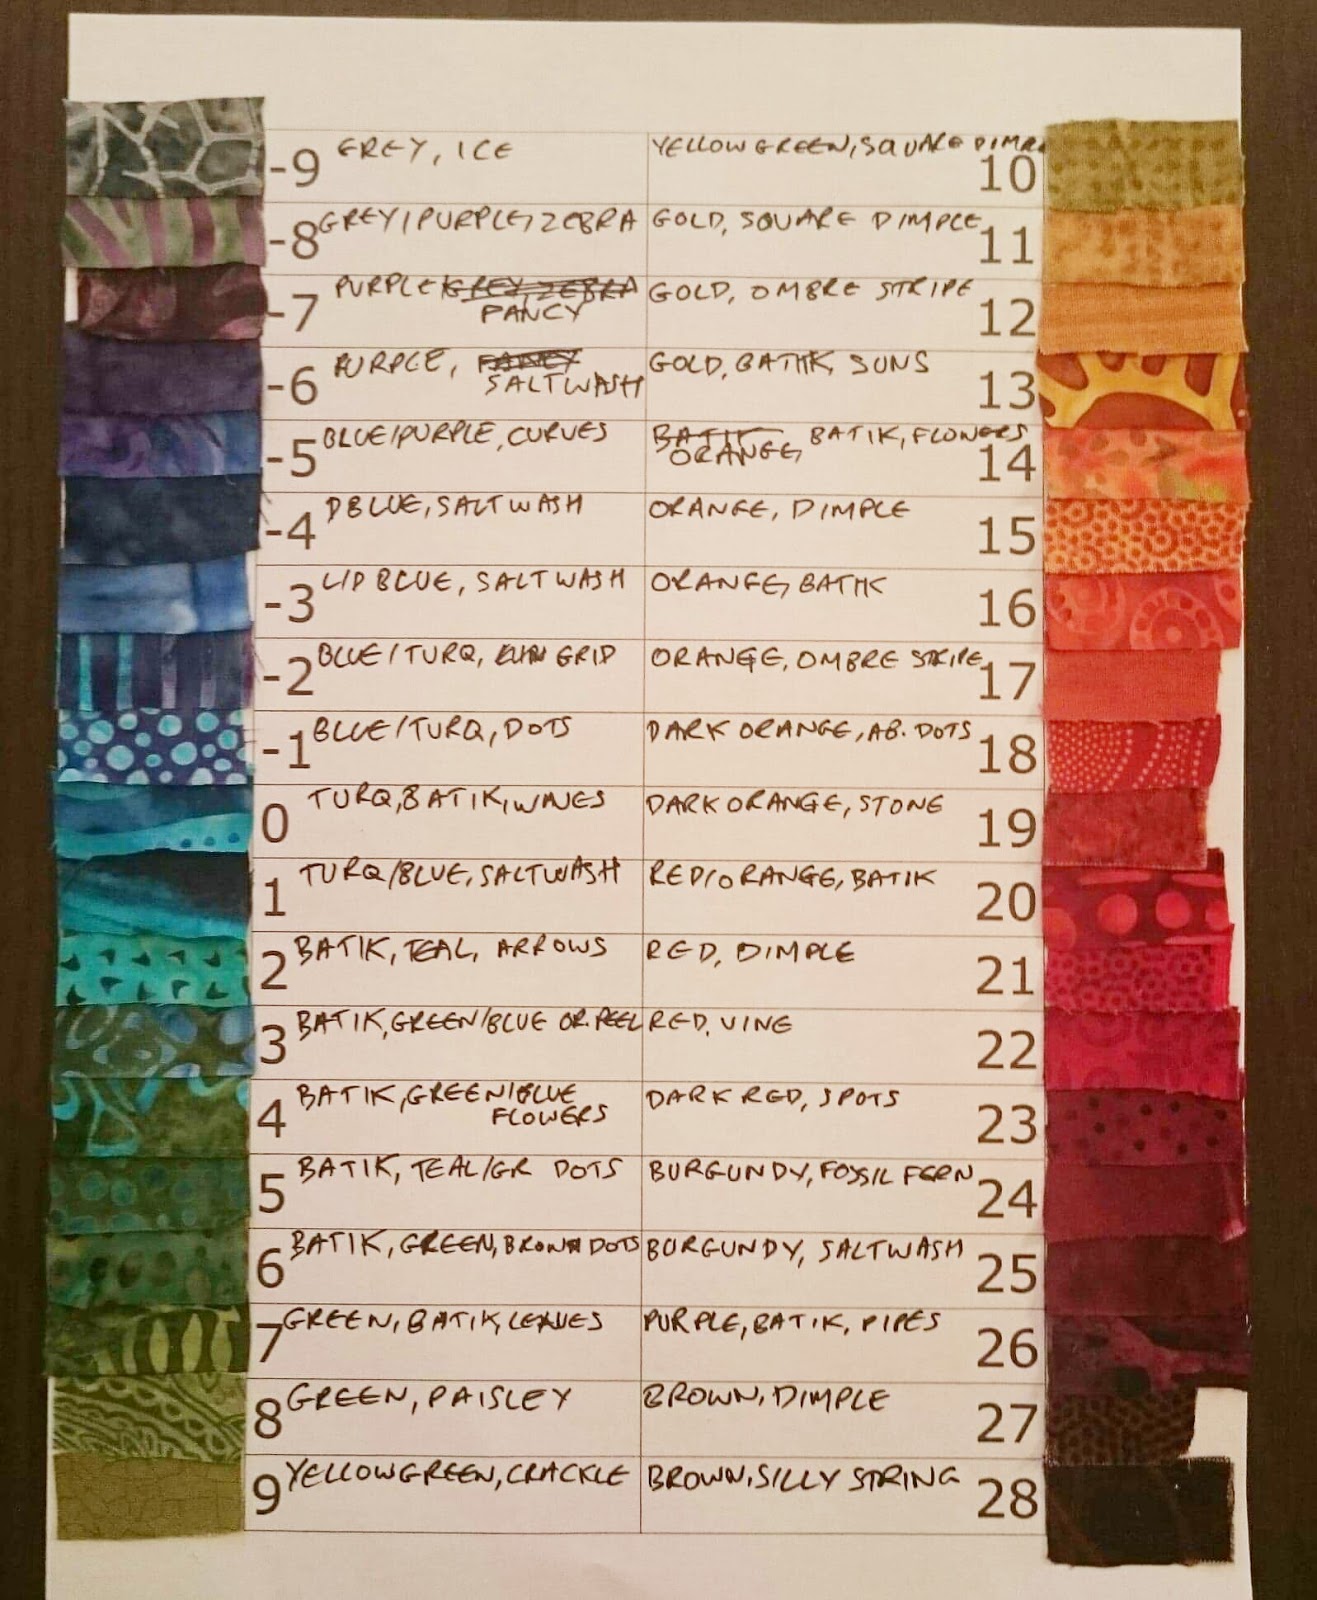 -9 GREY, ICE
-8 GREY/PURPLE, ZEBRA
-7 PURPLE GREY, ZEBRA
FANCY
-6 PURPLE, FANCY
SALTWASH
-5 BLUE/PURPLE, CURVES
-4 DBLUE, SALTWASH
-3 BLUE, SALTWASH
-2 BLUE/TURQ, GRID
-1 BLUE/TURQ, DOTS
0 TURQ, BATIK, WAVES
1 TURQ/BLUE, SALTWASH
2 BATIK, TEAL, ARROWS
3 BATIK, GREEN/BLUE OR. PEEL
4 BATIK, GREEN/BLUE
FLOWERS
5 BATIK, TEAL/GR DOTS
6 BATIK, GREEN, BROWN DOTS
7 GREEN, BATIK, LEAVES
8 GREEN, PAISLEY
9 YELLOWGREEN, CRACKLE
YELLOWGREEN, SQUARE 10
GOLD, SQUARE DIMPLE 11
GOLD, OMBRE STRIPE 12
GOLD, BATIK, SUNS 13
BATIK BATIK, FLOWERS
ORANGE, 14
ORANGE, DIMPLE 15
ORANGE, BATIK 16
ORANGE, OMBRE STRIPE 17
DARK ORANGE, AB. DOTS 18
DARK ORANGE, STONE 19
RED/ORANGE, BATIK 20
RED, DIMPLE 21
RED, VINE 22
DARK RED, SPOTS 23
BURGUNDY, FOSSIL FERN 24
BURGUNDY, SALTWASH 25
PURPLE, BATIK, PIPES 26
BROWN, DIMPLE 27
BROWN, SILLY STRING 28